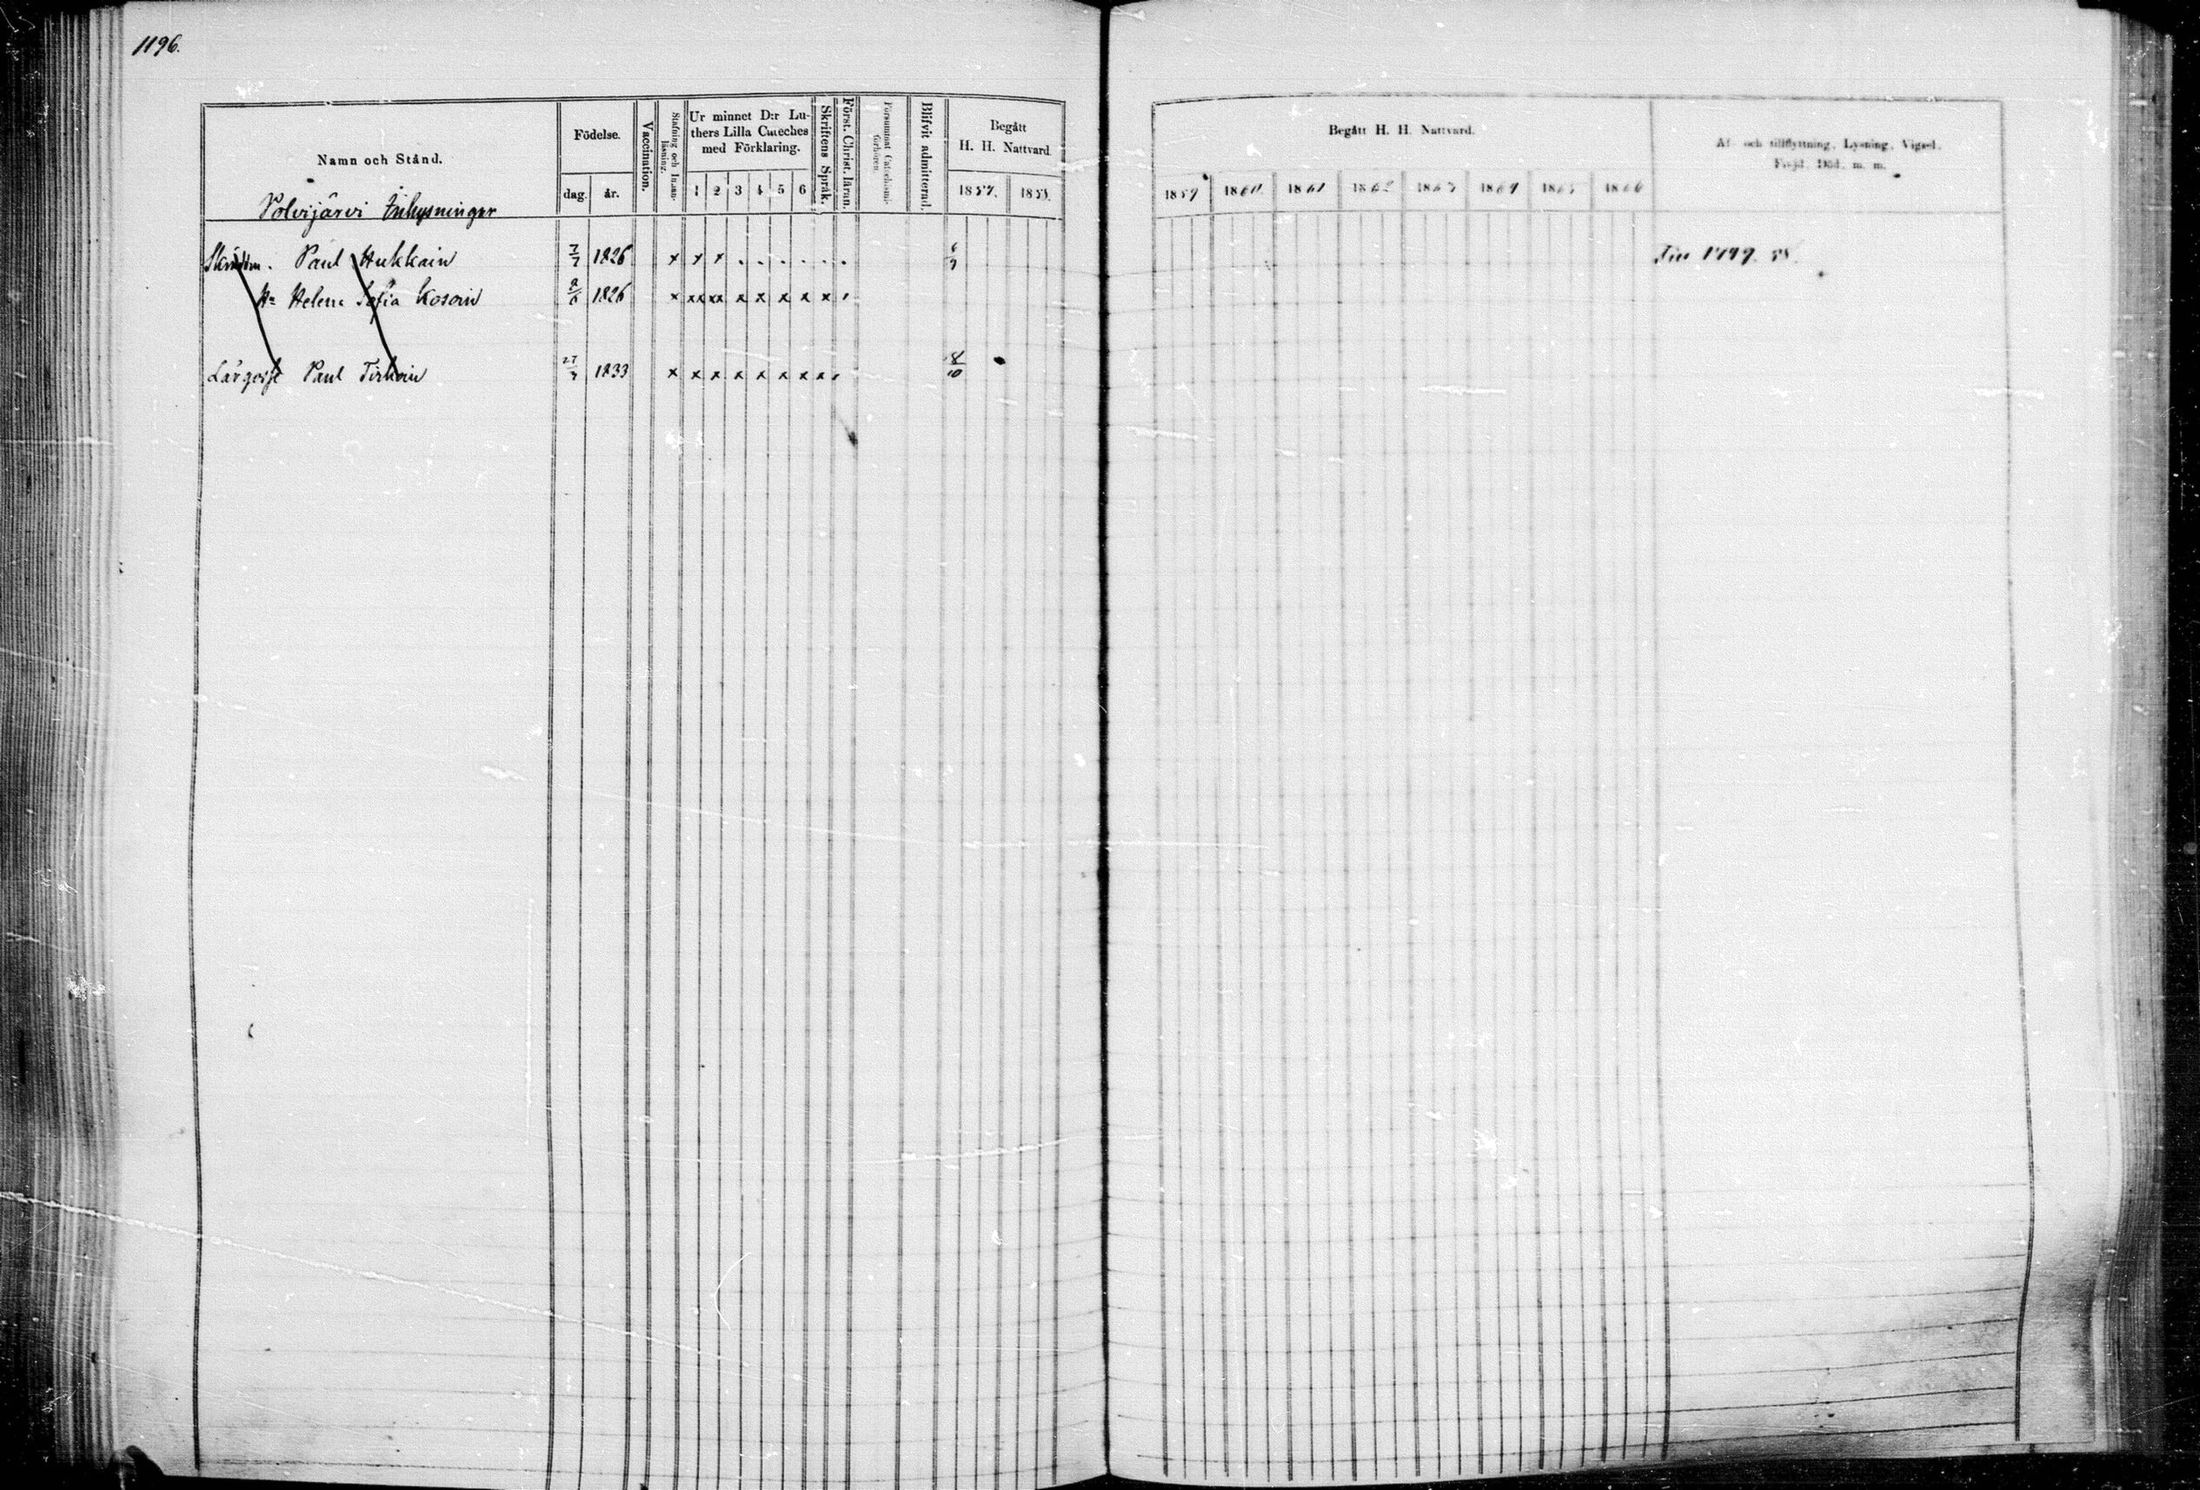 1196.
Namn och Stånd.
Födelse.
dag. år.
Vaccination.
Stafning och Innanläsning.
Ur minnet D:r Luthers Lilla Cateches med Förklaring.
1 2 3 4 5 6
Skriftens Språk.
Först. Christ. läran.
Försummat Catechismi-förhören.
Blifvit admitterad.
Begått
H. H. Nattvard.
1857. 1858.
Polvijärvi Inhysningar
Paul Hukkain 7/7 1826 x x x . . . . . . 6/7
Hu Helena Sofia Kosoin 1826 x xx xx x x x x x
Paul Tirkoin 27/ 1833 x x x x x x x x 8/10
Begått H. H. Nattvard.
1859 1860. 1861 1862 1863 1864 1865 1866
Af- och tillflyttning, Lysning, Vigsel,
Frejd, Död, m. m.